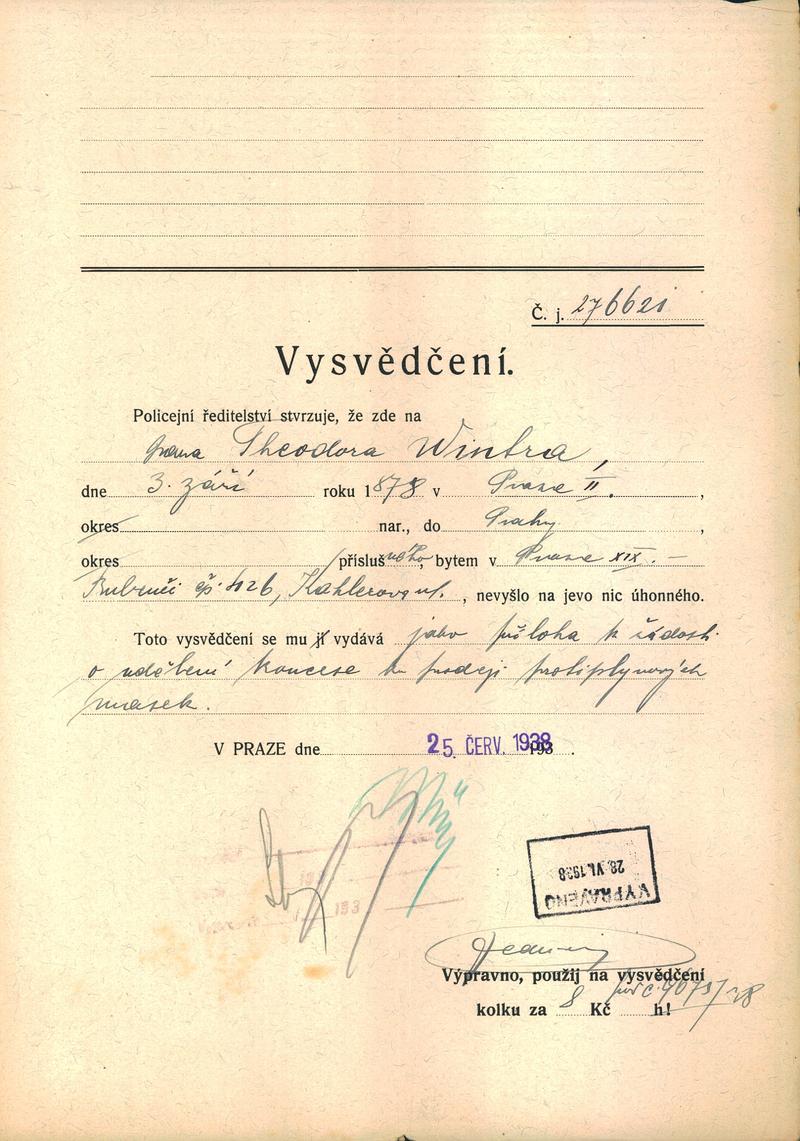 Č. j. 276621
Vysvědčení.
Policejní ředitelství stvrzuje, že zde na
pana Theodora Wintra,
dne 3. září roku 1878 v Praze II. ,
okres nar., do Prahy ,
okres příslušného, bytem v Praze XIX. –
Bubenči čp. 426, Kahlerova ul. , nevyšlo na jevo nic úhonného.
Toto vysvědčení se mu jí vydává jako příloha k žádosti
o udělení koncese ku prodeji protiplynových
masek.
V PRAZE dne 25. ČERV. 1938 193 .
VYPRAVENO
28. VI. 1938
Výpravno, použij na vysvědčení
kolku za 8 Kč h!